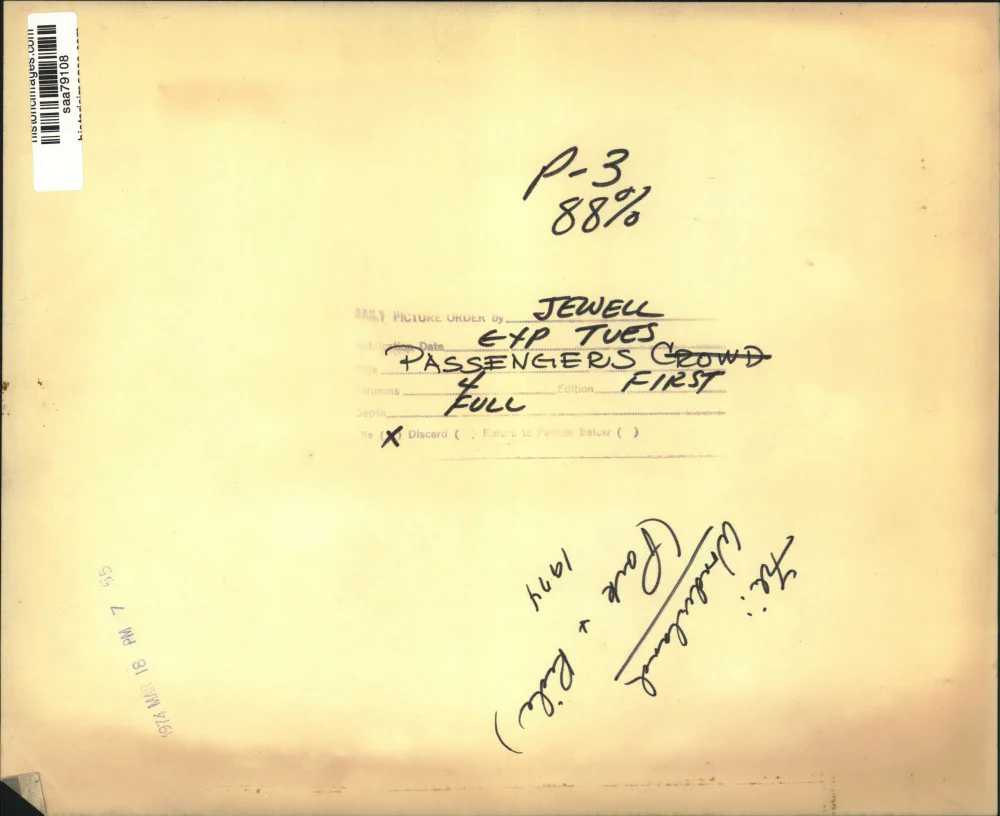 historicimages.com
saa79108
P-3
88%
DAILY PICTURE ORDER by JEWELL
Publication Date EXP TUES
Title PASSENGERS CROWD
Columns 4 Edition FIRST
Depth FULL
File (X) Discard ( ) Return to Person below ( )
File:
Wonderland
(Park & Ride)
1974
1974 MAR 18 PM 7 55